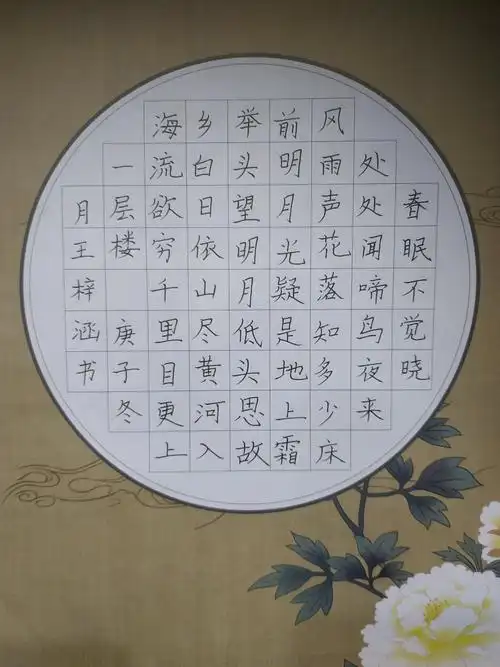 春眠不觉晓
处处闻啼鸟夜来
风雨声花落知多少床
前明月光疑是地上霜
举头望明月低头思故
乡白日依山尽黄河入
海流欲穷千里目更上
一层楼 庚子冬
月王梓涵书